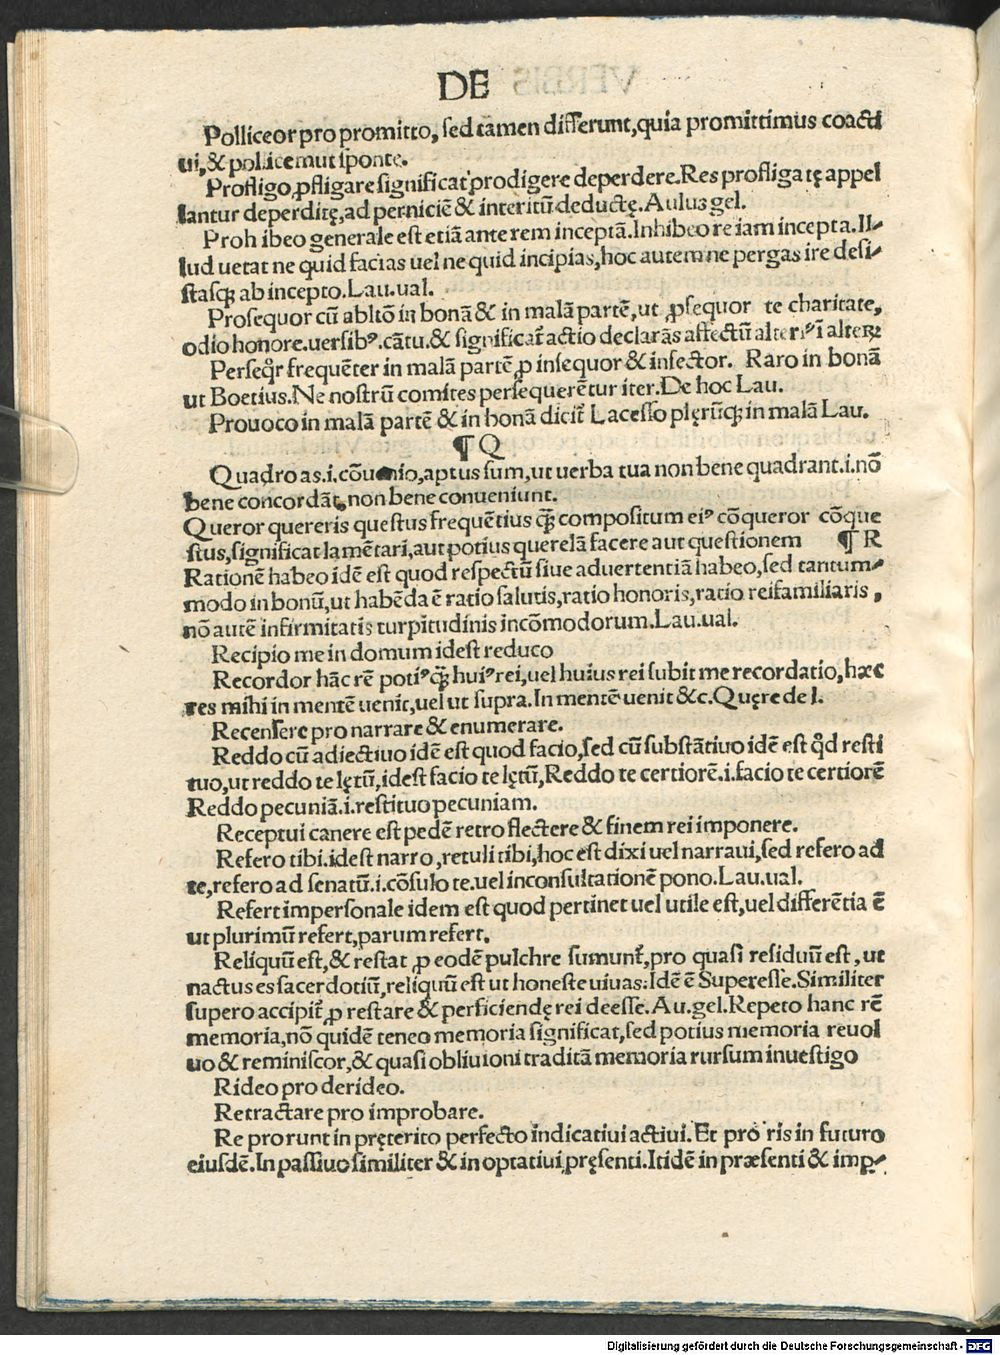 DE
Polliceor pro promitto, ſed tamen differunt, quia promittimus coacti
ui, & pollicemur ſponte.
Profligo, ꝓfligare ſignificat prodigere deperdere. Res profligatę appel
lantur deperditę, ad perniciē & interitū deductę. Aulus gel.
Prohibeo generale eſt etiā ante rem inceptā. Inhibeo re iam incepta. Il⸗
lud uetat ne quid facias uel ne quid incipias, hoc autem ne pergas ire deſi⸗
ſtasqꝫ ab incepto. Lau. ual.
Proſequor cū abltō in bonā & in malā partē, ut ꝓſequor te charitate,
odio honore. uerſibꝰ. cātu. & ſignificat̄ actio declarās affectū alteriꝰ ī alteꝝ
Perſeqr̄ frequēter in malā partē ꝓ inſequor & inſector. Raro in bonā
ut Boetius. Ne noſtrū comites perſequerētur iter. De hoc Lau.
Prouoco in malā partē & in bonā dicit̄ Laceſſo plęrūqꝫ in malā Lau.
¶ Q
Quadro as .i. cōuenio, aptus ſum, ut uerba tua non bene quadrant .i. nō
bene concordāt, non bene conueniunt.
Queror quereris queſtus frequētius qꝫ̄ compoſitum eiꝰ cōqueror cōque
ſtus, ſignificat lamētari, aut potius querelā facere aut queſtionem ¶ R
Rationē habeo idē eſt quod reſpectū ſiue aduertentiā habeo, ſed tantum⸗
modo in bonū, ut habēda ē ratio ſalutis, ratio honoris, ratio reifamiliaris,
nō autē infirmitatis turpitudinis incōmodorum. Lau. ual.
Recipio me in domum ideſt reduco
Recordor hāc rē potiꝰqꝫ̄ huiꝰ rei, uel huius rei ſubit me recordatio, hæc
res mihi in mentē uenit, uel ut ſupra. In mentē uenit &c. Quęre de I.
Recenſere pro narrare & enumerare.
Reddo cū adiectiuo idē eſt quod facio, ſed cū ſubſtātiuo idē eſt qd̄ reſti
tuo, ut reddo te lętū, ideſt facio te lętū, Reddo te certiorē .i. facio te certiorē
Reddo pecuniā .i. reſtituo pecuniam.
Receptui canere eſt pedē retro flectere & finem rei imponere.
Refero tibi .ideſt narro, retuli tibi, hoc eſt dixi uel narraui, ſed refero ad
te, refero ad ſenatū .i. cōſulo te. uel in conſultationē pono. Lau. ual.
Refert imperſonale idem eſt quod pertinet uel utile eſt, uel differētia ē
ut plurimū refert, parum refert.
Reliquū eſt, & reſtat ꝓ eodē pulchre ſumunt̄, pro quaſi reſiduū eſt, ut
nactus es ſacerdotiū, reliquū eſt ut honeſte uiuas: Idē ē Supereſſe. Similiter
ſupero accipit̄ ꝓ reſtare & perficiendę rei deeſſe. Au. gel. Repeto hanc rē
memoria, nō quidē teneo memoria ſignificat, ſed potius memoria reuol
uo & reminiſcor, & quaſi obliuioni traditā memoria rurſum inueſtigo
Rideo pro derideo.
Retractare pro improbare.
Re pro runt in pręterito perfecto indicatiui actiui. Et pro ris in futuro
eiuſdē. In paſſiuo ſimiliter & in optatiui pręſenti. Itidē in præſenti & imꝑ⸗
Digitalisierung gefördert durch die Deutsche Forschungsgemeinschaft - DFG